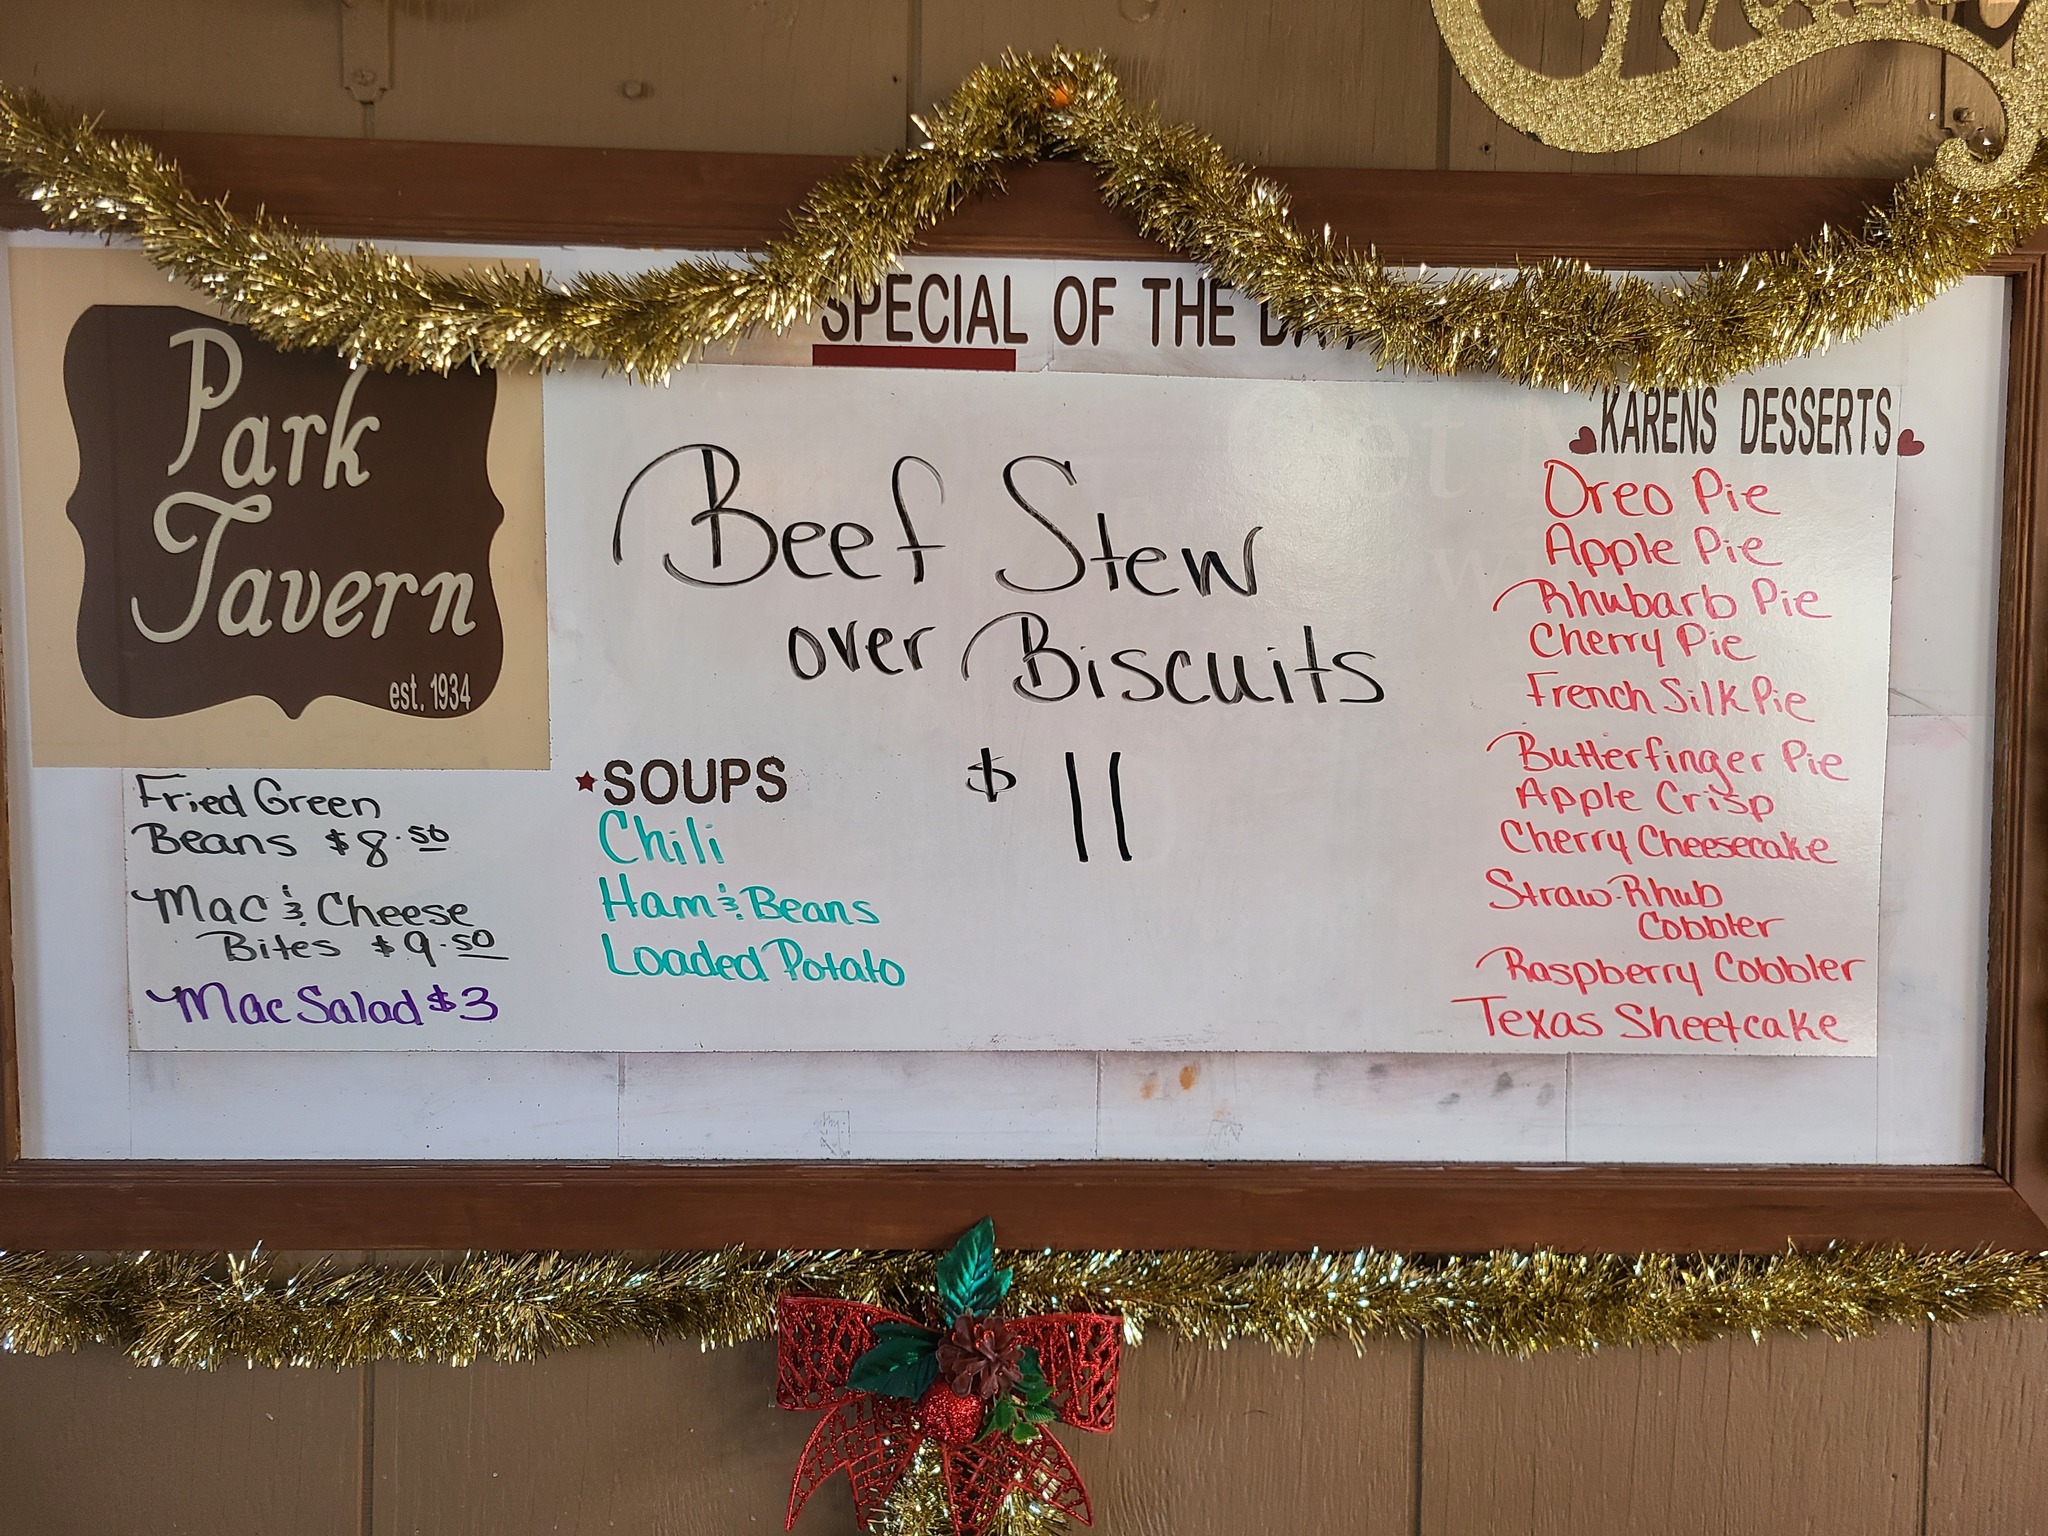 Park
Tavern
est. 1934
SPECIAL OF THE DAY
Beef Stew
over Biscuits
$ 11
Fried Green
Beans $8.50
Mac & Cheese
Bites $9.50
Mac Salad $3
SOUPS
Chili
Ham & Beans
Loaded Potato
KARENS DESSERTS
Oreo Pie
Apple Pie
Rhubarb Pie
Cherry Pie
French Silk Pie
Butterfinger Pie
Apple Crisp
Cherry Cheesecake
Straw-Rhub
Cobbler
Raspberry Cobbler
Texas Sheetcake